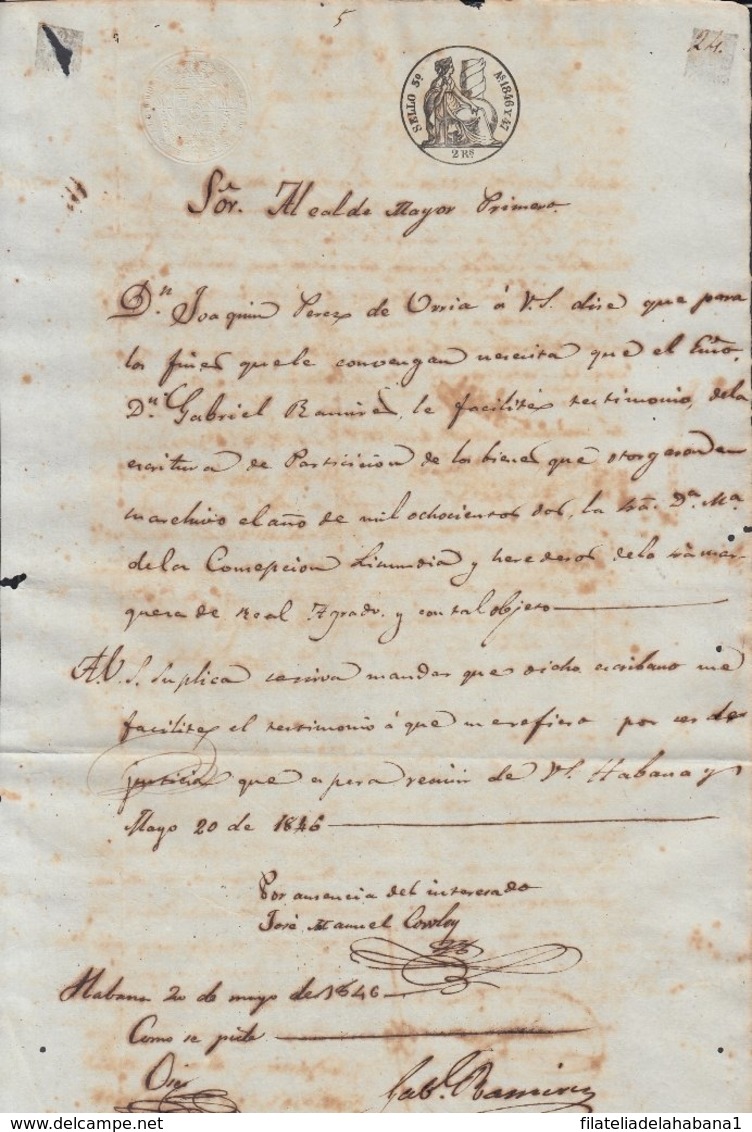 5
24.
SELLO 3º Aˢ 1846 Y 47
2 Rˢ
Sor. Alcalde Mayor Primero.
Dn. Joaquin Perez de Urria á V.S. dise que para
los fines que le convengan necesita que el Esño.
Dn. Gabriel Ramires, le facilite testimonio, de la
escritura de Particicion de los bienes que otorgaron en
su archivo el año de mil ochocientos dos, la Sra. Da. Ma.
de la Concepcion y herederos de la Sra mar-
quesa de Real Agrado. y con tal objeto
A.V.S. suplica se sirva mandar que dicho escribano me
facilite el testimonio á que me refiero por ser de
justicia que espera recivir de V.S. Habana y
Mayo 20 de 1846
Por ausencia del interesado
José Manuel Cowley
Habana 20 de mayo de 1846
Como se pide
Gabl. Ramirez
filateliadelahabana1